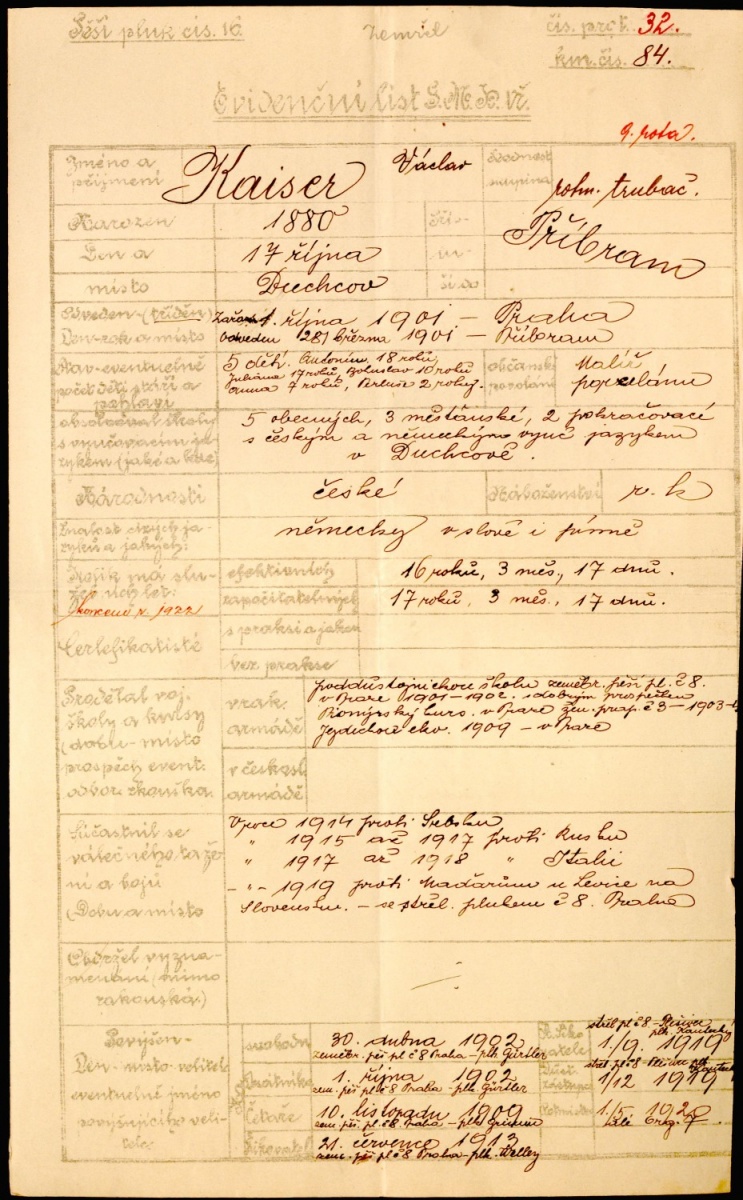 Pěší pluk čís. 16.
Zemřel
čís. prot. 32.
km. čís. 84.
Evidenční list
9. rota.
Jméno a příjmení
Kaiser Václav
Hodnost
rotm. trubač.
Narozen
1880
Den a
17 října
místo
Duchcov
Příbram
Odveden (tříděn)
1. října 1901 – Praha
Den-rok a místo
Odveden 28/ března 1901 – Příbram
Stav-eventuelně
počet dětí stáří a
pohlaví
5 dětí. Antonín 18 roků,
Juliana 17 roků, Boleslav 10 roků
Anna 7 roků, 2 roky.
občanské
povolání
Malíř
porcelánu
absolvoval školy
s vyučovacím ja-
zykem (jaké a kde)
5 obecných, 3 měšťanské, 2 pokračovací
s českým a německým vyuč jazykem
v Duchcově.
Národnosti
české
Náboženství
ř. k
Znalost cizích ja-
zyků a jakých:
německy v slově i písmě
efektivních
16 roků, 3 měs., 17 dnů.
Skončeno r. 1922
započitatelných
17 roků, 3 měs., 17 dnů.
Certifikatisté
s praksí a jakou
bez prakse
Prodělal voj.
školy a kursy
(doba-místo
prospěch event.
odbor. zkouška.
v rak.
armádě
poddůstojnickou školu zeměbr. pěší pl. č 8.
v Praze 1901–1902. s dobrým prospěchem
v Praze 1903–
1909 – v Praze
v českosl.
armádě
Súčastnil se
válečného taže-
ní a bojů
(Doba a místo
V roce 1914 proti Srbsku
„ 1915 až 1917 proti Rusku
„ 1917 až 1918 „ Italii
– „ – 1919 proti Maďarům u Levice na
Slovensku. – se střel. plukem č 8.
Obdržel vyzna-
menání (mimo
rakouská.)
Povýšen-
Den-místo-
eventuelně jméno
povyšujícího veli-
tele:
svobodn.
30. dubna 1902
zeměbr. pěš pl č 8 Praha – plk. Gürtler
1. října 1902
zem. pěš pl č 8 Praha – plk. Gürtler
Četaře
10. listopadu 1909
zem. pěš. pl. č 8 Praha – plk.
Šikovatel
21. července 1913
zem. pěš pl č 8 Praha – plk.
střel pl č 8
1/9. 1919
střel. pl č 8
1/12 1919
1./5. 1920